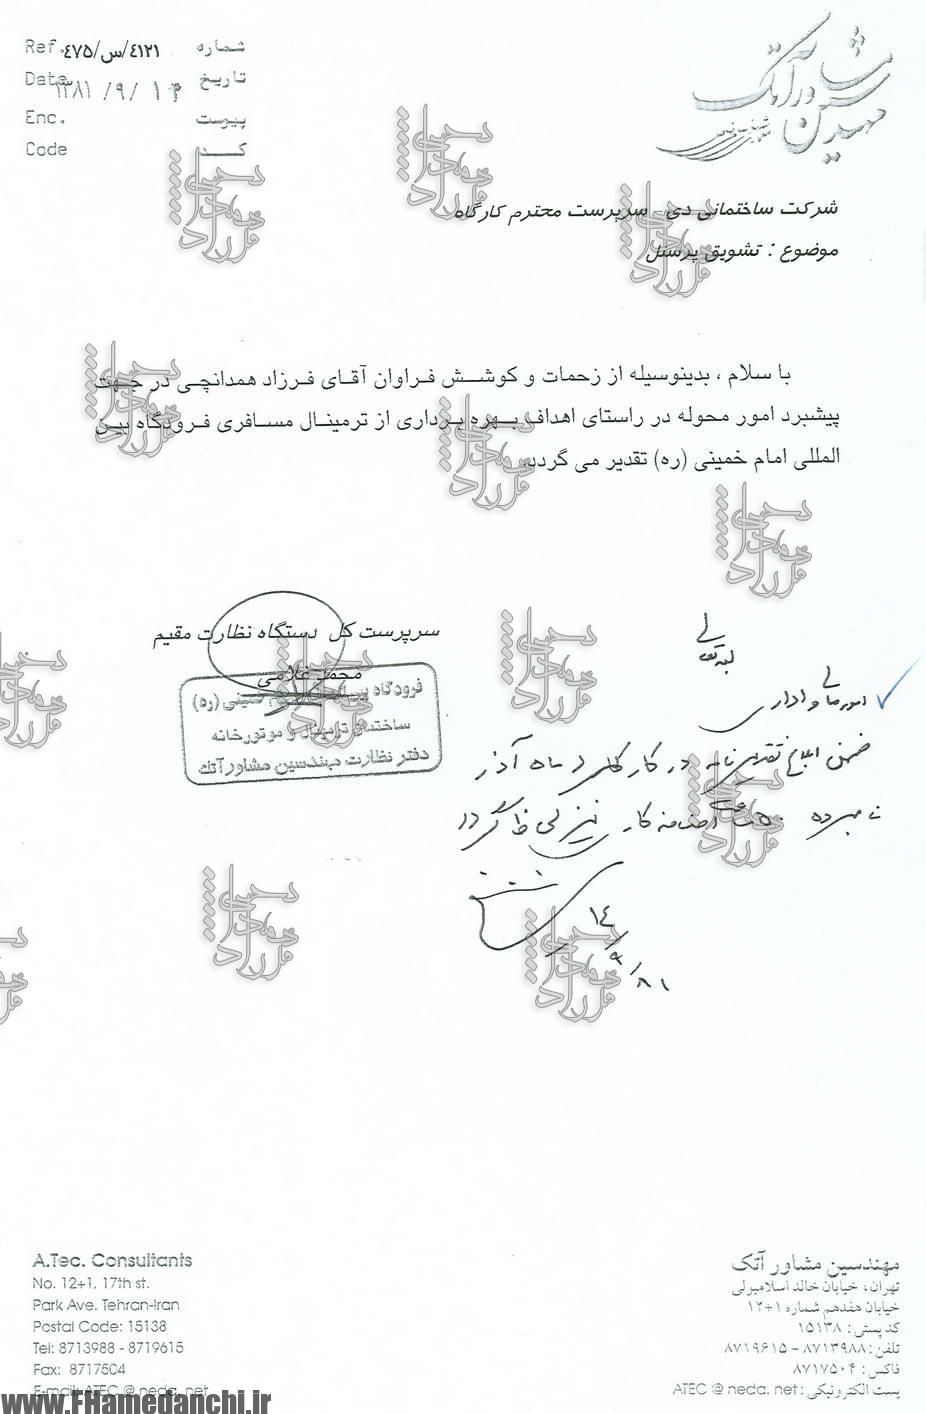 مهندسین مشاور آتک
Ref. ٤١٢١/س/٤٧٥ شماره
Date ١٣٨١/٩/١٣ تاریخ
Enc. پیوست
Code کد
شرکت ساختمانی دی - سرپرست محترم کارگاه
موضوع : تشویق پرسنل
با سلام ، بدینوسیله از زحمات و کوشش فراوان آقای فرزاد همدانچی در جهت
پیشبرد امور محوله در راستای اهداف بهره برداری از ترمینال مسافری فرودگاه بین
المللی امام خمینی (ره) تقدیر می گردد.
سرپرست کل دستگاه نظارت مقیم
محمد غلامی
فرودگاه بین المللی امام خمینی (ره)
ساختمان ترمینال و موتورخانه
دفتر نظارت مهندسین مشاور آتک
بسمه تعالی
امور مالی و اداری
ضمن ابلاغ تقدیرنامه در کارکرد ماه آذر
نامبرده ساعت اضافه کاری نیز لحاظ گردد
١٤/٩/٨١
A.Tec. Consultants
No. 12+1, 17th st.
Park Ave. Tehran-Iran
Postal Code: 15138
Tel: 8713988 - 8719615
Fax: 8717504
E-mail: ATEC @ neda. net
مهندسین مشاور آتک
تهران، خیابان خالد اسلامبولی
خیابان هفدهم شماره ١+١٢
کد پستی: ١٥١٣٨
تلفن: ٨٧١٣٩٨٨ – ٨٧١٩٦١٥
فاکس: ٨٧١٧٥٠٤
پست الکترونیکی: ATEC @ neda. net
www.FHamedanchi.ir